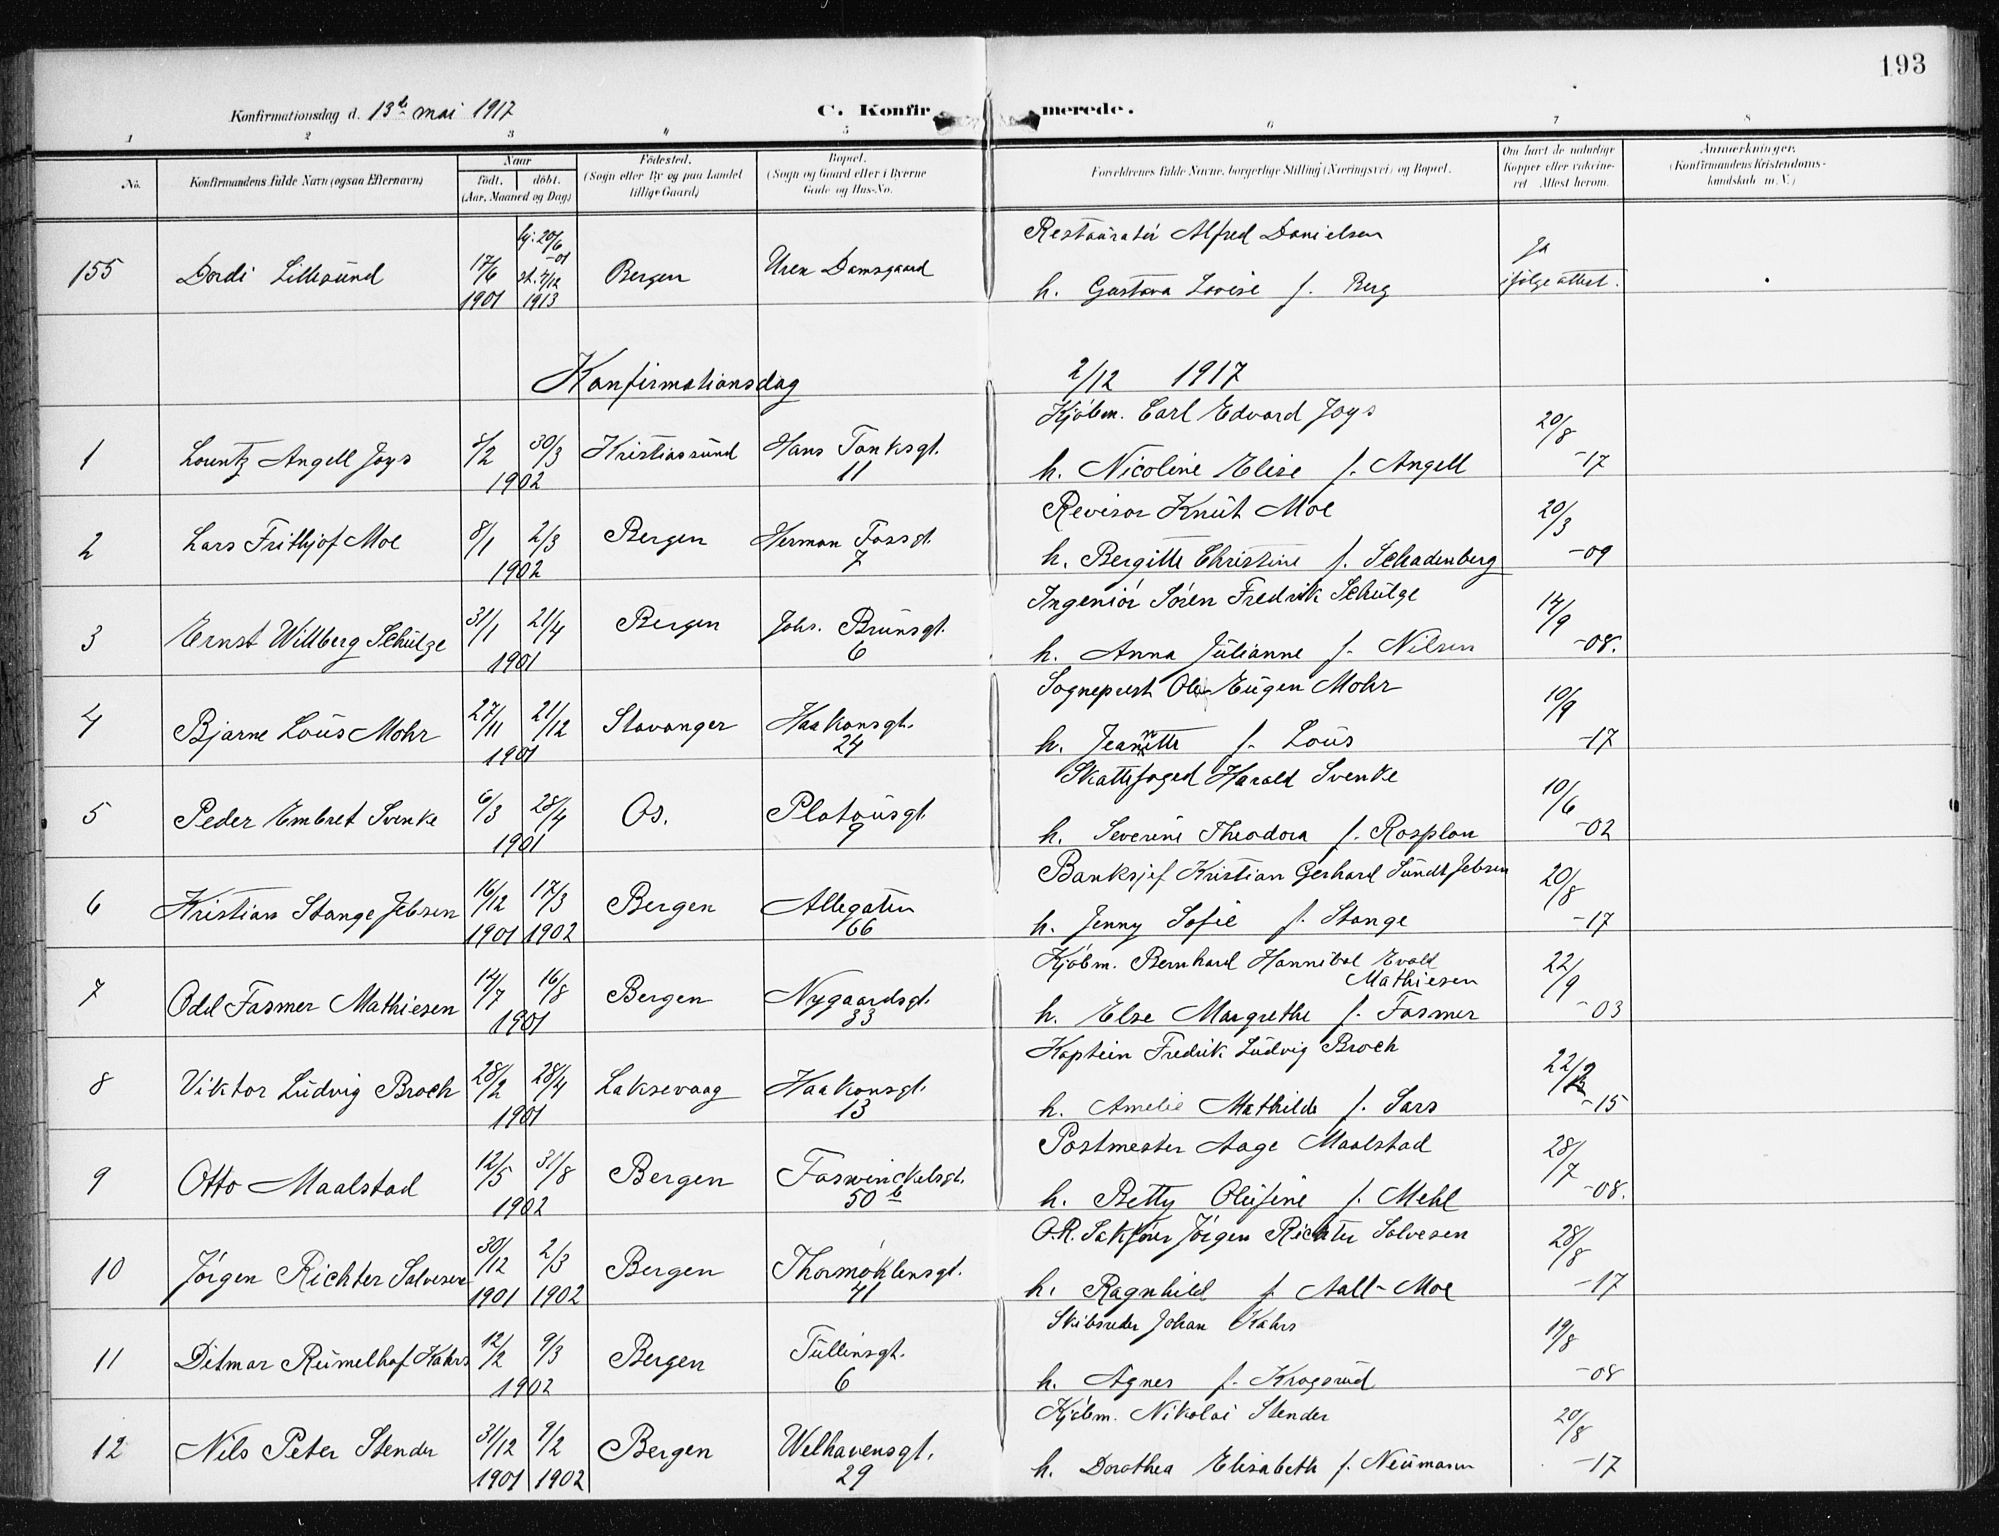 193
Konfirmationsdag d. 13de mai 1917
C. Konfirmerede.
1 2 3 4 5 6 7 8
No.
Konfirmandens fulde Navn (ogsaa Efternavn)
Naar
født. døbt.
(Aar, Maaned og Dag)
Födested.
(Sogn eller By og paa Landet
tillige Gaard)
Bopæl.
(Sogn og Gaard eller i Byerne
Gade og Hus-No.
Forældrenes fulde Navne, borgerlige Stilling (Næringsvei) og Bopæl.
Om havt de naturlige
Kopper eller vakcine-
ret. Attest herom.
Anmærkninger.
(Konfirmandens Kristendoms-
kundskab m. V.)
155 Dordi Lillesund 17/6 1901 hj: 20/6 -01 st. 7/12 1913 Bergen Uren Damsgaard
Restauratør Alfred Danielsen
h. Gustava Lovise f. Berg
Ja
ifølge attest.
Konfirmationsdag 2/12 1917
1 Lorentz Angell Joys 5/2 30/3 1902 Kristiassund Hans Tanksgt. 11
Kjøbm. Carl Edvard Joys
h. Nicoline Elise f. Angell
20/8 -17
2 Lars Frithjof Moe 8/1 2/3 1902 Bergen Herman Fossgt. 7
Revisor Knut Moe
h. Bergitte Christine f. Schadenberg
20/3 -09
3 Ernst Willberg Schulze 31/1 21/4 1901 Bergen Johs. Brunsgt. 6
Ingeniør Søren Fredrik Schulze
h. Anna Julianne f. Nilsen
14/9 -08.
4 Bjarne Lous Mohr 27/11 21/12 1901 Stavanger Haakonsgt. 24
Sogneprest Ole Eugen Mohr
h. Jeannette f. Lous
10/9 -17
5 Peder Embret Svenke 6/3 28/4 1901 Os. Platousgt. 9
Skattefoged Harald Svenke
h. Severine Theodora f. Rosplan
10/6 -02
6 Kristian Stange Jebsen 16/12 1901 17/3 1902 Bergen Allegaten 66
Banksjef Kristian Gerhard Sundt Jebsen
h. Jenny Sofie f. Stange
20/8 -17
7 Odd Fasmer Mathiesen 14/7 16/8 1901 Bergen Nygaardsgt. 33
Kjøbm. Bernhard Hannibal Evald
Mathiesen
h. Else Margrethe f. Fasmer
22/9 -03
8 Viktor Ludvig Broch 28/2 28/4 1901 Laksevaag Haakonsgt. 13
Kaptein Fredrik Ludvig Broch
h. Amelie Mathilde f. Sars
22/2 -15
9 Otto Maalstad 12/5 31/8 1902 Bergen Foswinckelsgt. 50 b
Postmester Aage Maalstad
h. Betty Olufine f. Mehl
28/7 -08.
10 Jørgen Richter Salvesen 30/12 1901 2/3 1902 Bergen Thormøhlensgt. 41
O.R. Sakfører Jørgen Richter Salvesen
h. Ragnhild f. Aall-Moe
28/8 -17
11 Ditmar Rumelhof Kahrs 12/2 9/3 1902 Bergen Tullinsgt. 6
Skibsreder Johan Kahrs
h. Agnes f. Krogsrud
19/8 -08
12 Nils Peter Stender 31/12 1901 9/2 1902 Bergen Welhavensgt. 29
Kjøbm. Nikolai Stender
h. Dorothea Elisabeth f. Neumann
20/8 -17